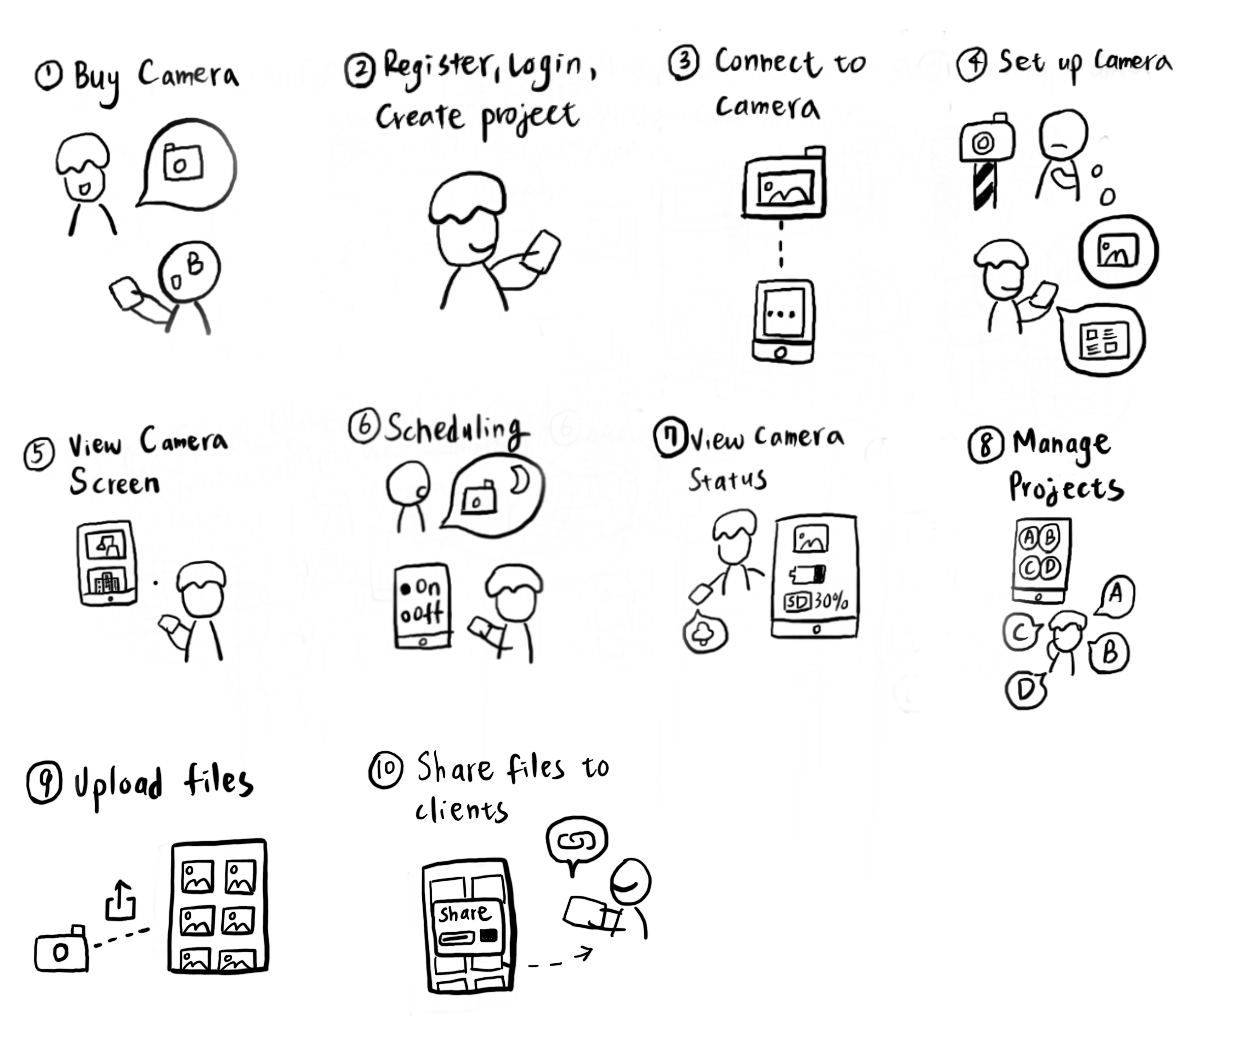 ① Buy Camera
B
② Register, Login,
Create project
③ Connect to
Camera
④ Set up Camera
⑤ View Camera
Screen
⑥ Scheduling
On
Off
⑦ View Camera
Status
SD 30%
⑧ Manage
Projects
A B
C D
A
C
B
D
⑨ Upload files
⑩ Share files to
clients
Share